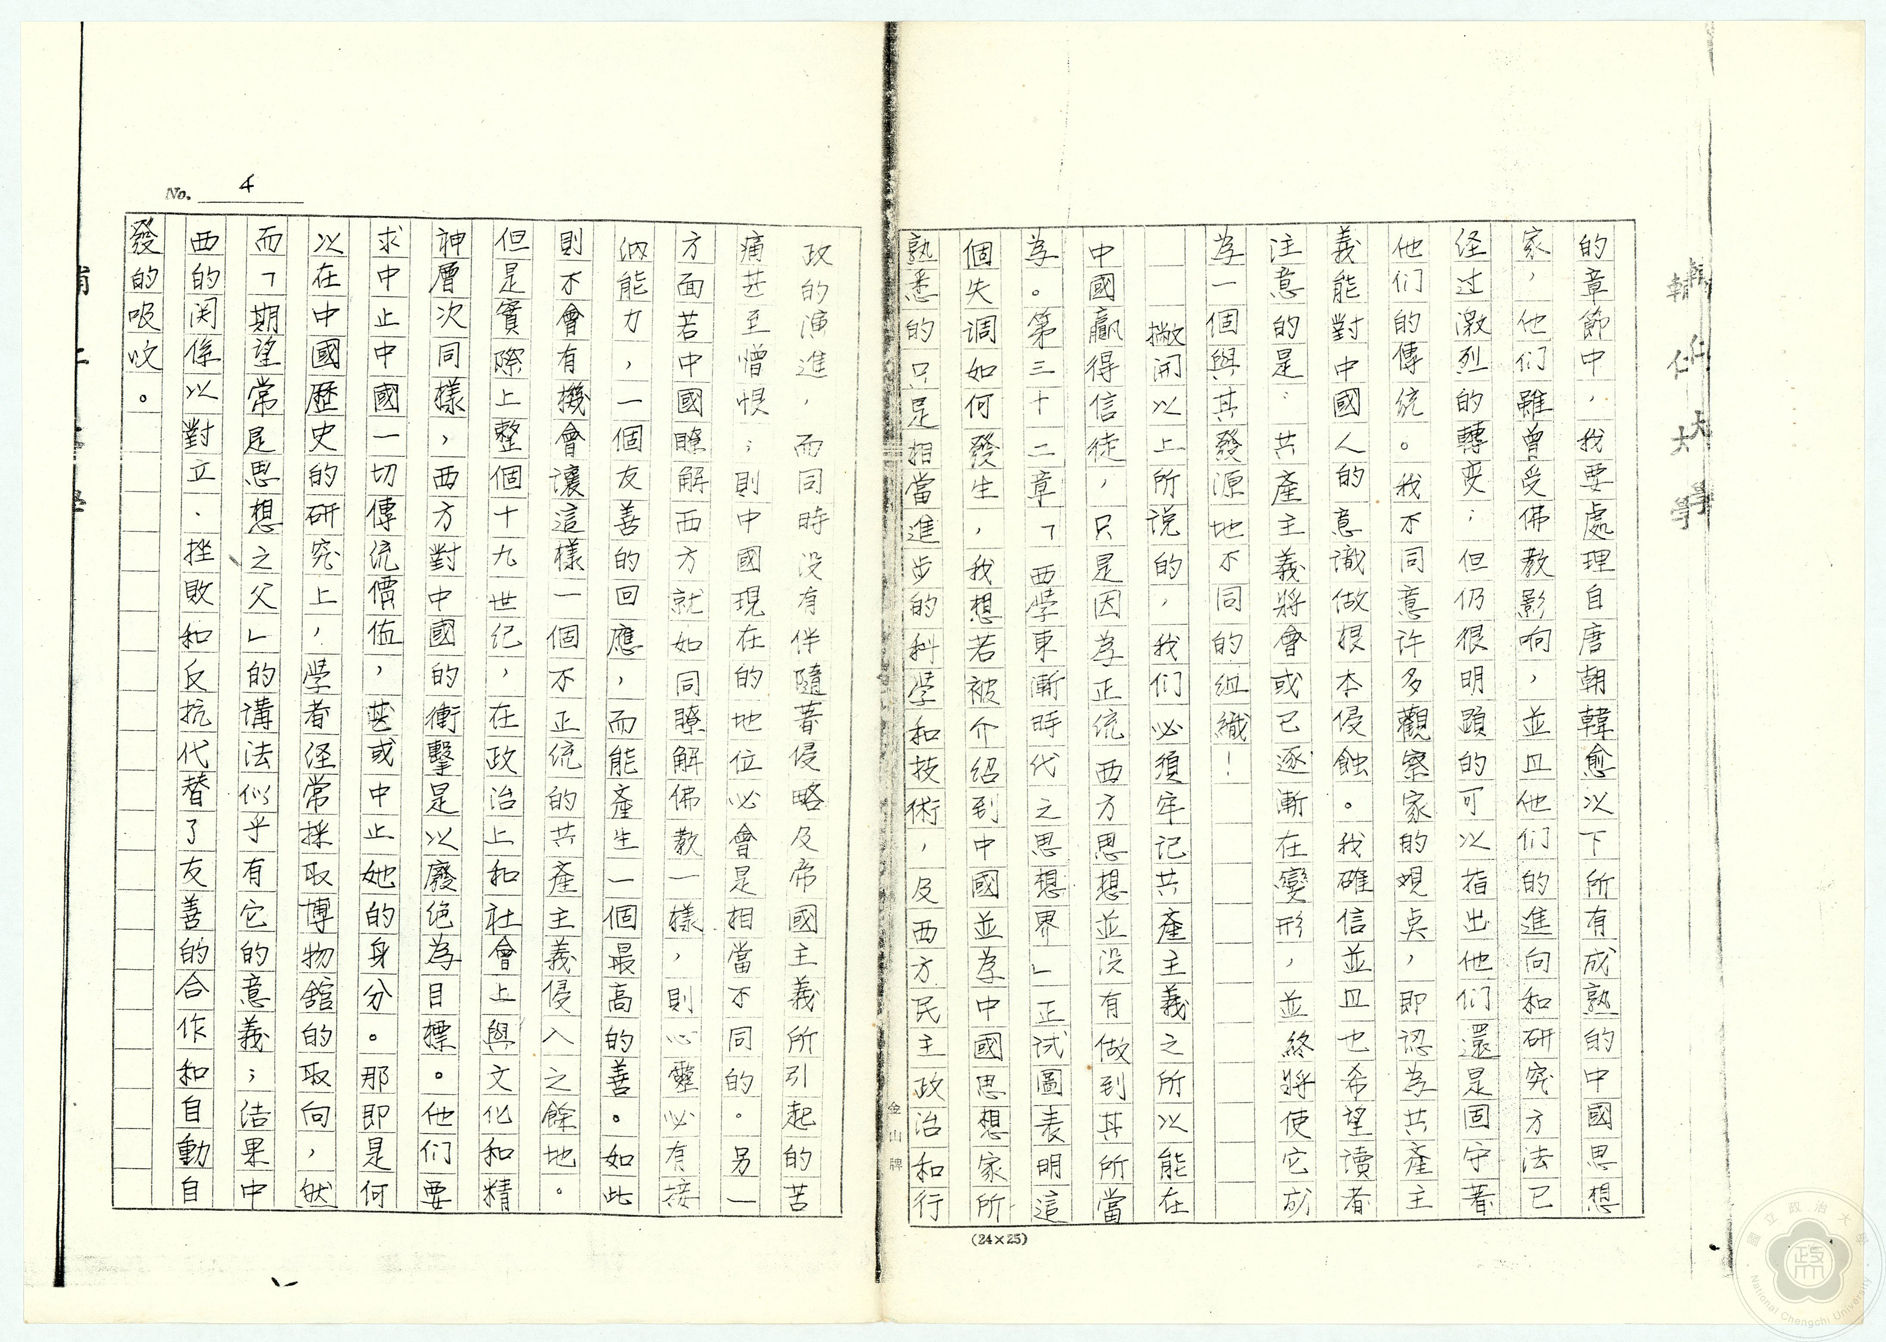 的章節中，我要處理自唐朝韓愈以下所有成熟的中國思想
家，他们雖曾受佛教影响，並且他们的進向和研究方法已
経过激烈的轉变；但仍很明顕的可以指出他们還是固守著
他们的傳統。我不同意许多觀察家的覌点，即認為共產主
義能對中國人的意識做根本侵蝕。我確信並且也希望讀者
注意的是：共產主義將會或已逐漸在變形，並終將使它成
為一個與其發源地不同的組織！
撇開以上所说的，我们必須牢记共產主義之所以能在
中國贏得信徒，只是因為正統西方思想並没有做到其所當
為。第三十二章「西學東漸時代之思想界」正试圖表明這
個失调如何發生，我想若被介绍到中國並為中國思想家所
熟悉的只是相當進步的科學和技術，及西方民主政治和行
政的演進，而同時没有伴隨著侵略及帝國主義所引起的苦
痛甚至憎恨；則中國現在的地位必會是相當不同的。另一
方面若中國瞭解西方就如同瞭解佛教一樣，則心靈必有接
納能力，一個友善的回應，而能產生一個最高的善。如此
則不會有機會讓這樣一個不正統的共產主義侵入之餘地。
但是實際上整個十九世纪，在政治上和社會上與文化和精
神層次同樣，西方對中國的衝擊是以廢绝為目標。他们要
求中止中國一切傳流價值，甚或中止她的身分。那即是何
以在中國歷史的研究上，學者経常採取博物舘的取向，然
而「期望常是思想之父」的講法似乎有它的意義；洁果中
西的関係以對立、挫敗和反抗代替了友善的合作和自動自
發的吸收。
No. 4
(24×25)
金山牌
輔仁大學
輔仁大學
國立政治大學
National Chengchi University